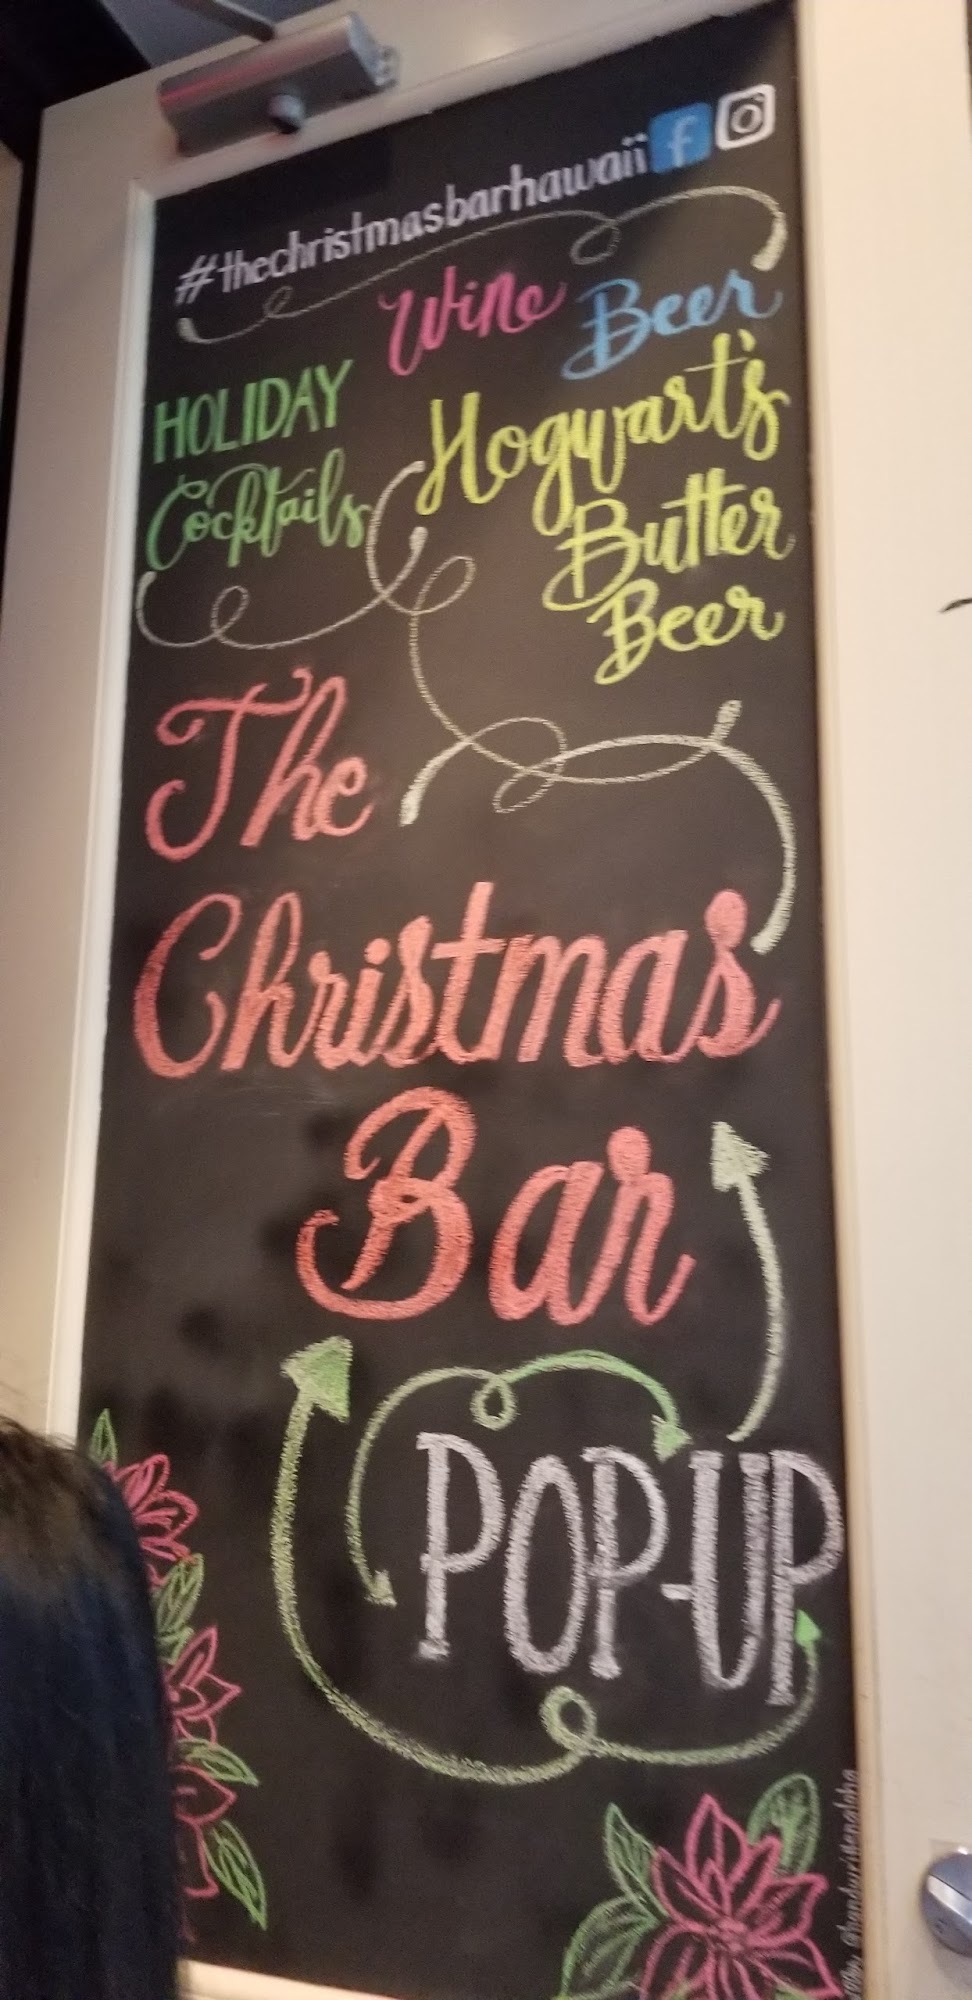 #thechristmasbarhawaii f
Wine Beer
HOLIDAY
Cocktails
Hogwart's
Butter
Beer
The
Christmas
Bar
POP-UP
@handwrittenaloha